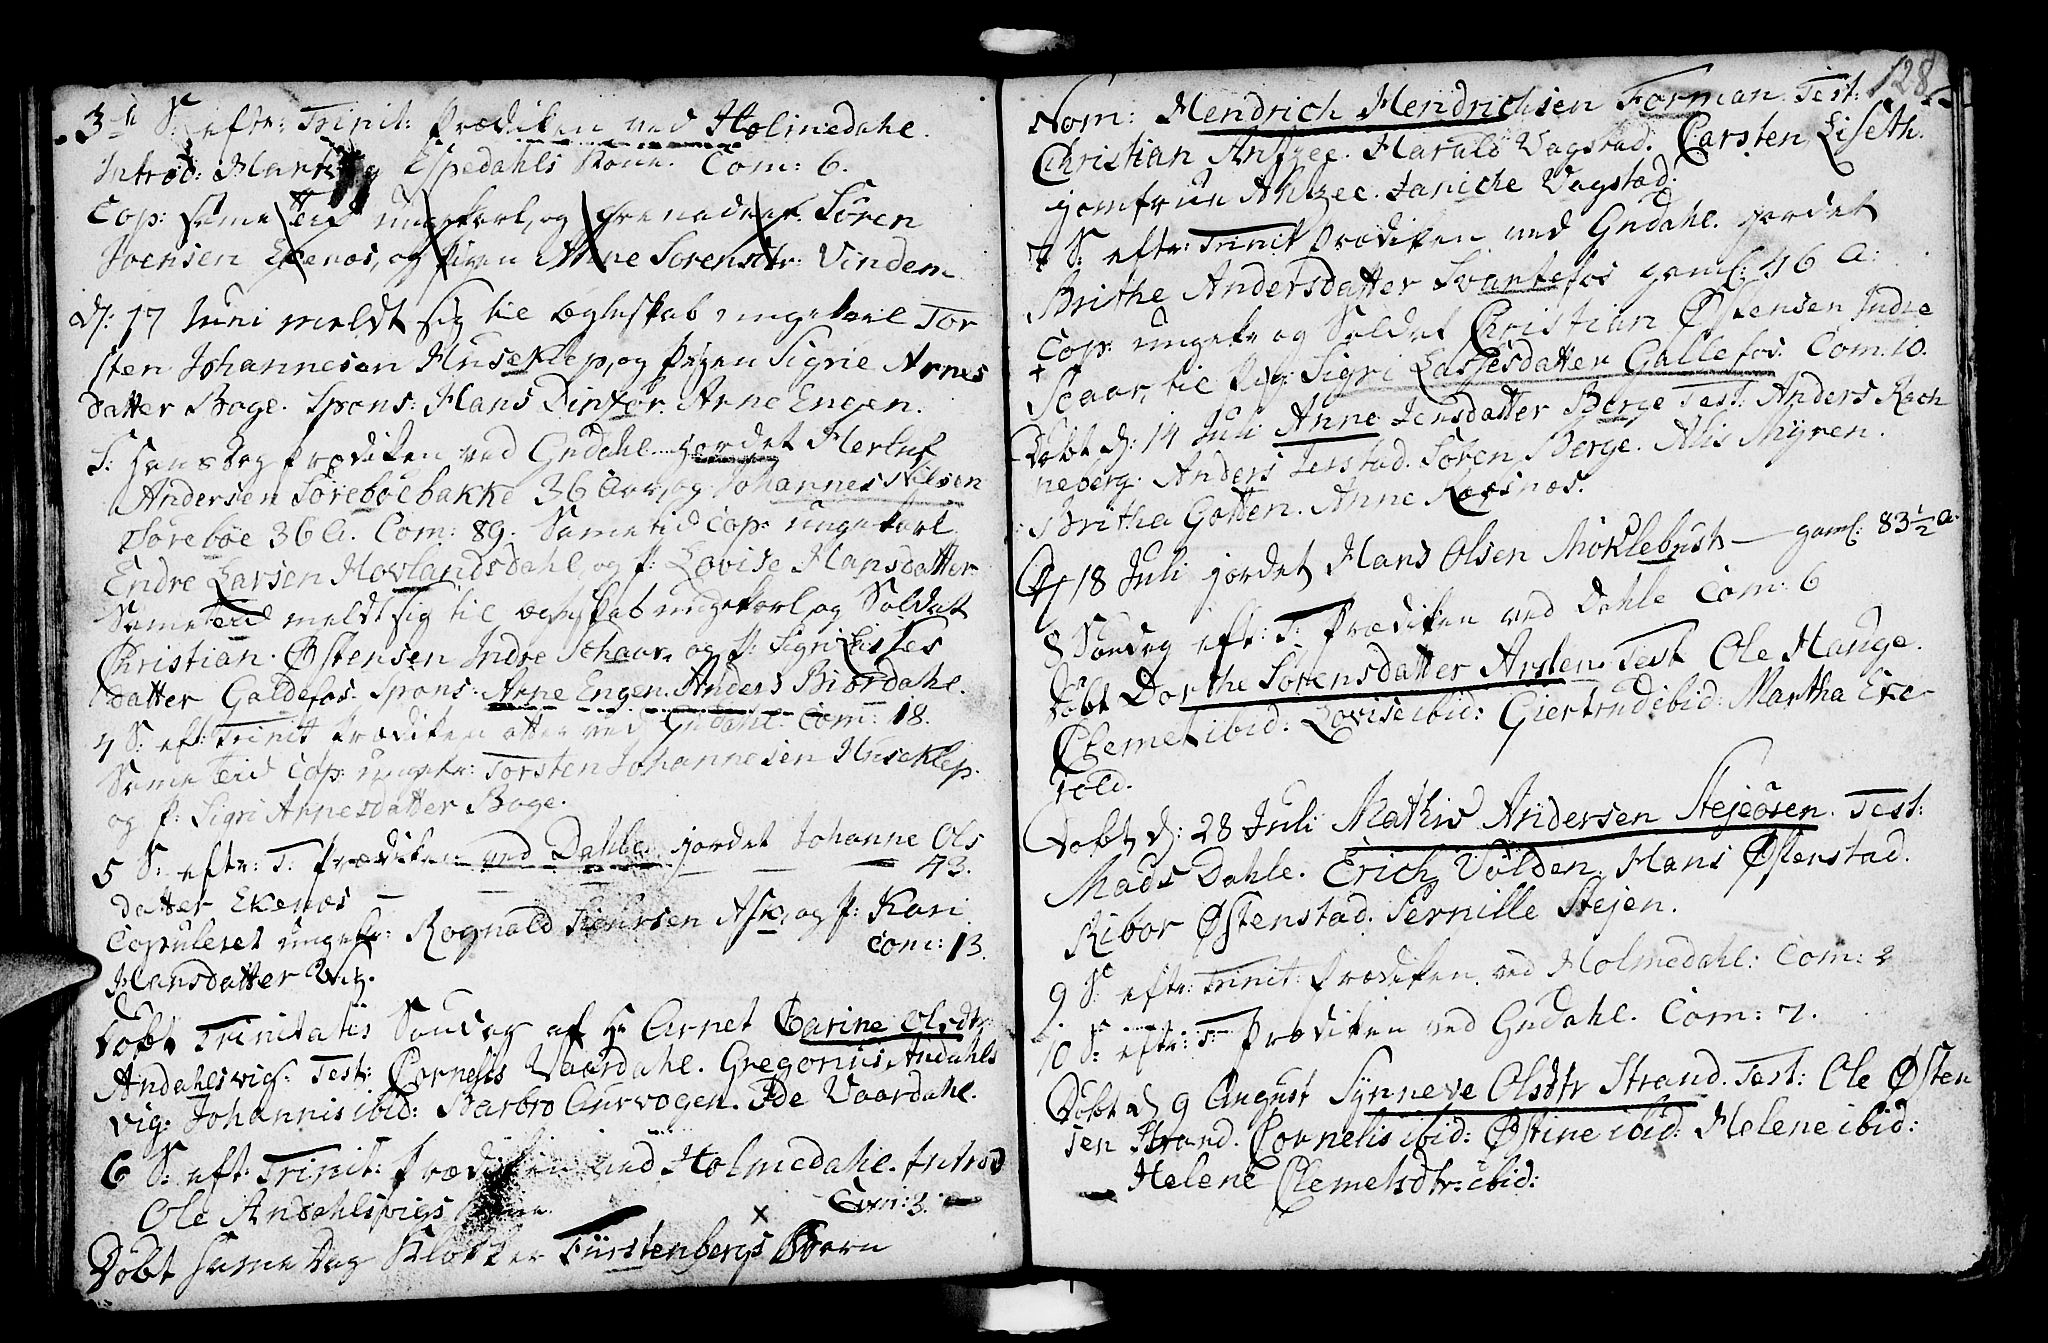 3die S: eftr: Trinit: Prædiken ved Holmedahl.
Introd: Espedahls Kone. Com: 6.
Cop: same Tid ungekarl, og Søren
Joensen Ekenæs, og pigen Anne Sørensdtr: Vindem
d: 17 Juni meldt sig til ægteskab ungekarl Tor
sten Johannesen Huseklep, og pigen Sigrie Arnes
datter Boge. Spons: Hans Arne Engen.
S: Hansdag Prædiken ved Gudahl jordet
Andersen Sørebøebakke 36 Aar, og Johannes Nilsen
Sørebøe 36 A. Com: 89. Sametid Cop: ungekarl
Endre Larsen Hovlandsdahl, og P: Lovise Hansdatter.
Same tid meldt sig til ægteskab ungekarl og Soldat
Christian Østensen Indre Schaar og P: Sigri Lasses
datter Galdefos. Spons: Arne Engen. Anders Biordahl.
4 S: eft: Trinit Prædiken atter ved Gudahl. Com: 18.
Same tid Cop: ungekr: Torsten Johannesen Huseklep.
og P: Sigri Arnesdatter Boge.
5 S: eftr: T: Prædiken ved Dahle jordet Johanne Ols
datter Ekenæs — — — — 43.
Copuleret ungekr: Rognald Ask, og P: Kari
Hansdatter Com: 13.
Døbt Trinitatis Søndag af Hr Arnet Carine Olsdtr
Andahlsvig. Test: Cornelis Vaardahl. Gregorius Andahls
vig. Johannis ibid: Barbro Aurvogen. Vaardahl.
6 S: eft: Trinit: Prædiken ved Holmedahl. Introd
Ole Andahlsvigs Kone. Com: 3.
Døbt same Dag Klokker Fürstenbergs Barn
128
Nom: Hendrich Hendrichsen Forman. Test:
Christian Harald Vagstad. Carsten Liseth.
jomfrue Janiche Vagstad.
7 S: eftr: Trinit Prædiken ved Gudahl. jordet
Brithe Andersdatter Svartefos gaml: 46 A:
Cop: ungekr og Soldat Christian Østensen Indre
Scaar, til Pig: Sigri Lassesdatter Gallefos. Com: 10.
Døbt d: 14 Juli Anne Jensdatter Berge Test: Anders Rech
neberg. Anders Søren Berge. Alis Myren.
Britha Gotten. Anne
d 18 Juli jordet Hans Olsen Møklebust — gaml: 83½ A.
8 Søndag eft: T: Prædiken ved Dahle Com: 6
Døbt Dorthe Sørensdatter Arsten. Test Ole Hauge.
Clemet ibid: Lovise ibid: Giertrud ibid: Martha Eke
told.
Døbt d: 28 Juli Mathis Andersen Stejeøsen. Test:
Mads Dahle. Erich Volden. Hans Østenstad.
Ribor Østenstad. Pernille Stejen.
9 S: eftr: Trinit: Prædiken ved Holmedahl: Com: 2
10 S: eftr: T: Prædiken ved Gudahl. Com: 7.
Døbt d 9 August Synneve Olsdtr Strand. Test: Ole Østen
sen Strand. Cornelis ibid: Østine ibid: Helene ibid:
Helene Clemetsdtr: ibid: